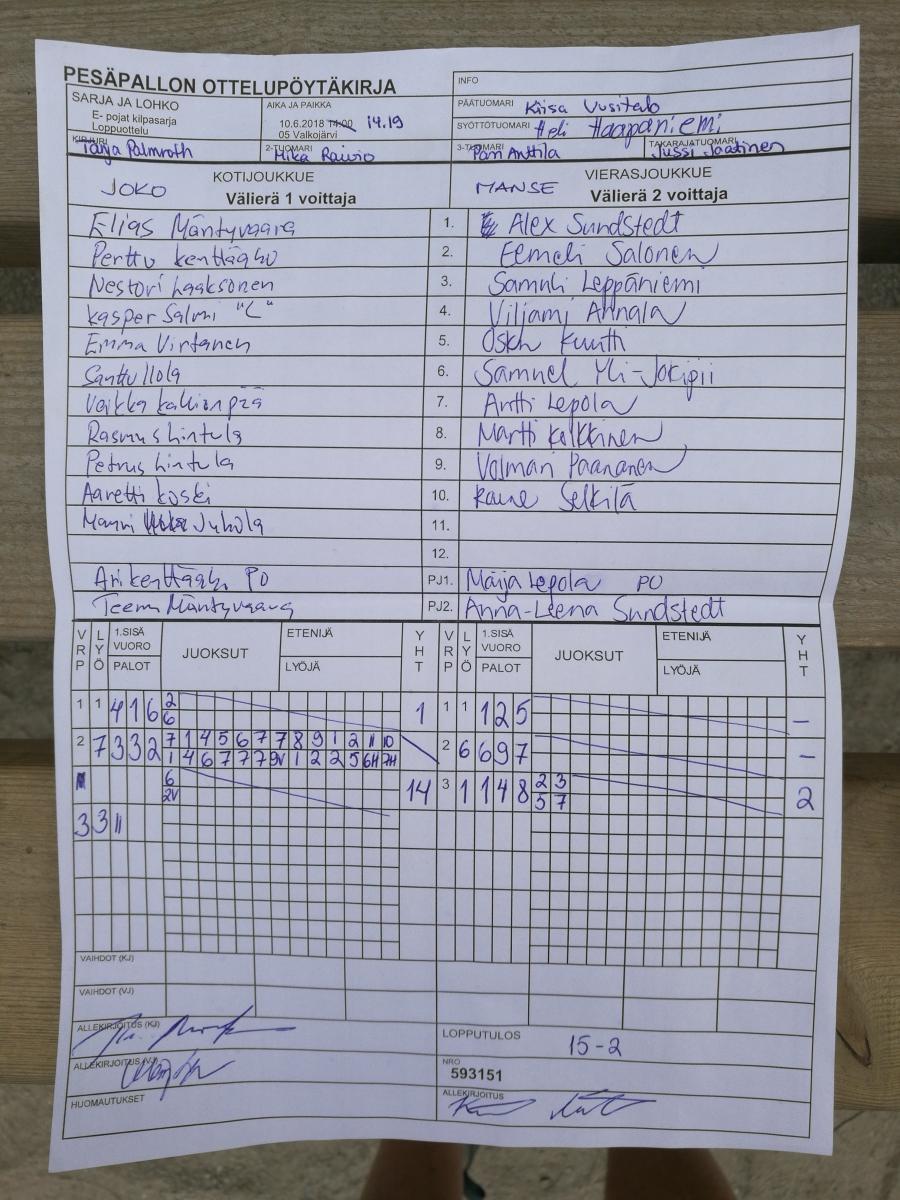 PESÄPALLON OTTELUPÖYTÄKIRJA
INFO
SARJA JA LOHKO
E- pojat kilpasarja
Loppuottelu
AIKA JA PAIKKA
10.6.2018 14:00 14.19
05 Valkojärvi
PÄÄTUOMARI Kiisa Uusitalo
SYÖTTÖTUOMARI Heli Haapaniemi
KIRJURI Tarja Palmroth
2-TUOMARI Mika Raivio
3-TUOMARI Pari Anttila
TAKARAJATUOMARI Jussi Jaatinen
JOKO KOTIJOUKKUE
Välierä 1 voittaja
MANSE VIERASJOUKKUE
Välierä 2 voittaja
Elias Mäntyvaara 1. Alex Sundstedt
Perttu Kenttäaho 2. Eemeli Salonen
Nestori Laaksonen 3. Samuli Leppäniemi
Kasper Salmi "L" 4. Viljami Annala
Emma Virtanen 5. Oskn Kuutti
Santtu Ilola 6. Samuel Yli-Jokipii
Veikka Kallionpää 7. Antti Lepola
Rasmus Lintula 8. Martti Kelkkinen
Petrus Lintula 9. Volmari Paananen
Aaretti Koski 10. Raine Selkilä
Mauri Juhola 11.
12.
Ari Kenttäaho PO PJ1. Maija Lepola PO
Teemu Mäntyvaara PJ2. Anna-Leena Sundstedt
VRP LYÖ 1.SISÄ VUORO PALOT JUOKSUT ETENIJÄ LYÖJÄ YHT VRP LYÖ 1.SISÄ VUORO PALOT JUOKSUT ETENIJÄ LYÖJÄ YHT
1 1 4 1 6 2 1 1 1 1 2 5 –
6
2 7 3 3 2 7 1 4 5 6 7 7 8 9 1 2 11 10 2 6 6 9 7 –
1 4 6 7 7 7 9V 1 2 2 5 6H 7H
6 14 3 1 1 4 8 2 3 2
2V 5 7
3 3 11
VAIHDOT (KJ)
VAIHDOT (VJ)
ALLEKIRJOITUS (KJ)
LOPPUTULOS 15-2
ALLEKIRJOITUS (VJ)
NRO
593151
HUOMAUTUKSET
ALLEKIRJOITUS